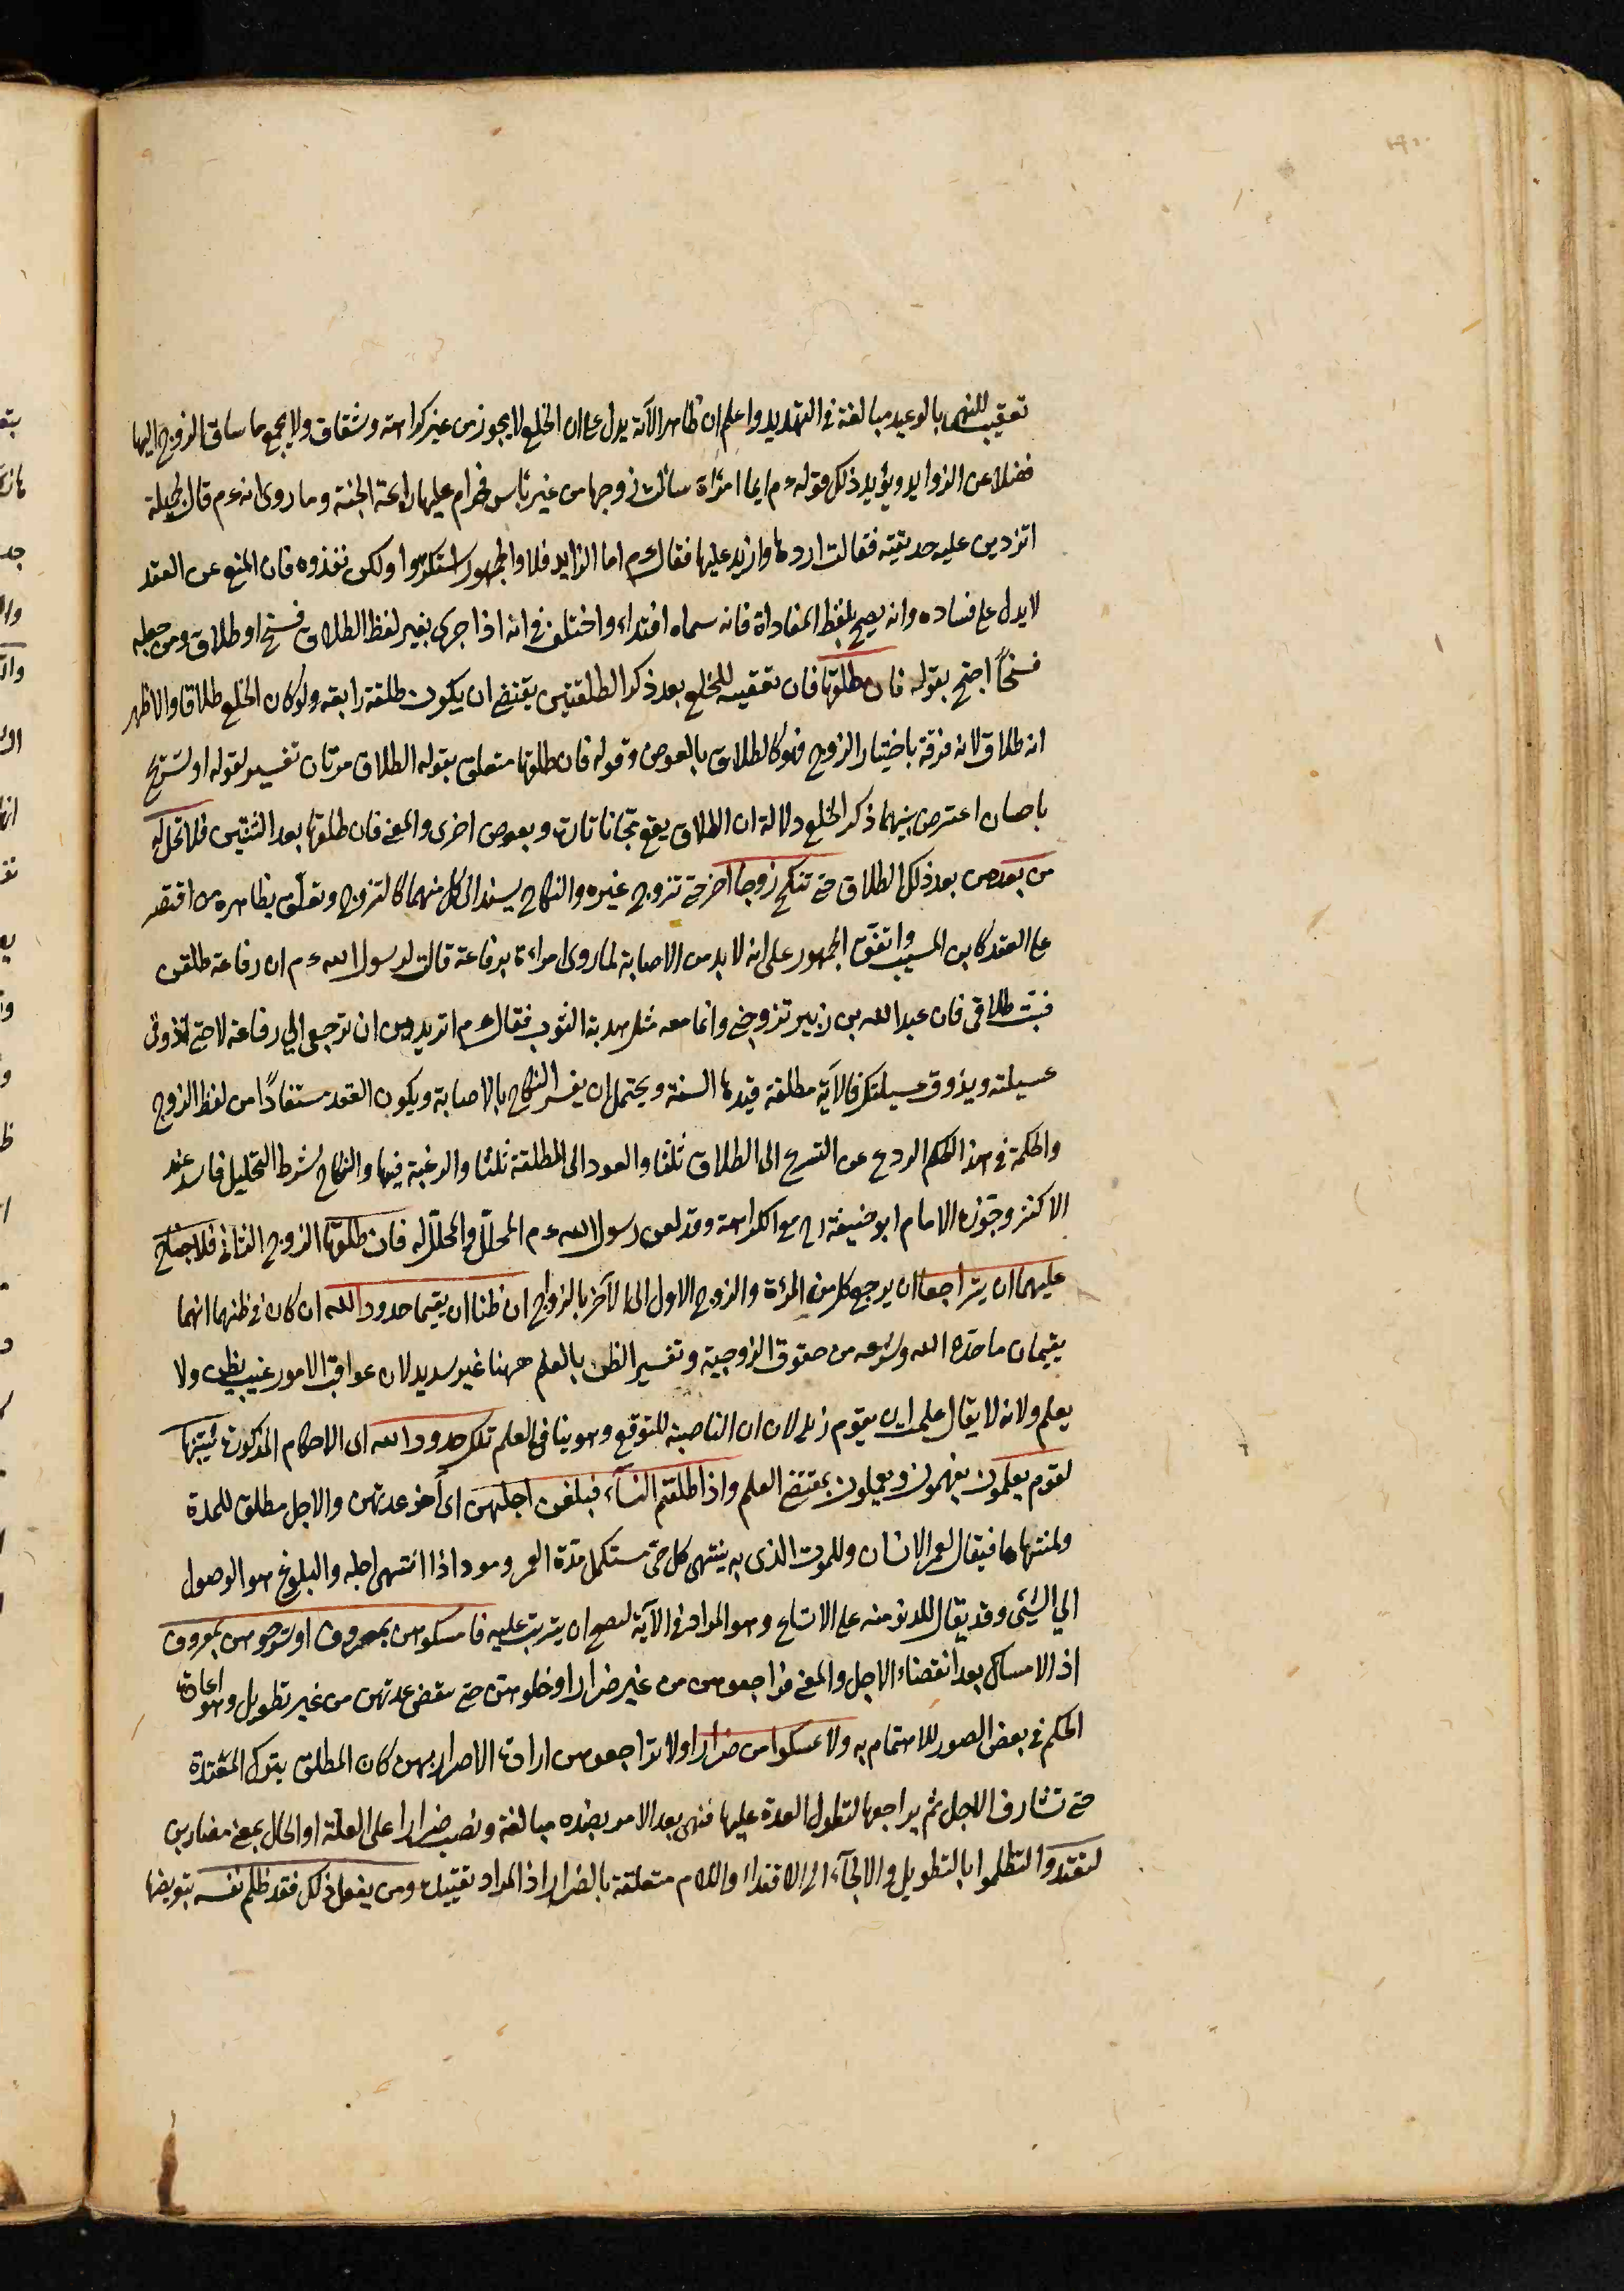 تعقيب للنهى بالوعيد مبالغة في التهديد واعلم ان ظاهر الآية يدل على ان الخلع لا يجوز من غير كراهة وشقاق ولا بجميع ما ساق الزوج اليها
فضلا عن الزوايد ويؤيد ذلك قوله ءم ايما امرأة سالت زوجها من غير بأس فحرام عليها رايحة الجنة وما روى انه ءم قال لجميلة
اتردين عليه حديقته فقالت اردها وازيد عليها فقال ءم اما الزايد فلا والجمهور استكرهوا ولكن نفذوه فان المنع عن العقد
لا يدل على فساده وانه يصح بلفظ المفاداة فانه سماه افتداء واختلف في انه اذا جرى بغير لفظ الطلاق فسخ او طلاق ومن جعله
فسخاً احتج بقوله فان طلقها فان تعقيبه للخلع بعد ذكر الطلقتين يقتضى ان يكون طلقة رابعة ولو كان الخلع طلاقا والاظهر
انه طلاق لانه فرقة باختيار الزوج فهو كالطلاق بالعوض وقوله فان طلقها متعلق بقوله الطلاق مرتان تفسير لقوله او تسريح
باحسان اعترض بينهما ذكر الخلع دلالة ان الطلاق يقع مجانا تارة وبعوض اخرى والمعنى فان طلقها بعد الثنتين فلا تحل له
من بعد من بعد ذلك الطلاق حتى تنكح زوجا آخر حتى تزوج غيره والنكاح يسند الى كل منهما كالتزوج وتعلق بظاهره من اقتصر
على العقد كابن المسيب واتفق الجمهور على انه لا بد من الاصابة لما روى امراءة برفاعة قالت لرسول الله ءم ان رفاعة طلقنى
فبتّ طلاقى فان عبد الله بن زبير تزوجنى وانما معه مثل هدبة الثوب فقال ءم اتريدين ان ترجعى الى رفاعة لا حتى تذوقى
عسيلته ويذوق عسيلتك فالآية مطلقة قيدها السنة ويحتمل ان يفسر النكاح بالاصابة ويكون العقد مستفاداً من لفظ الزوج
والحكمة في هذا الحكم الردع عن التسرع الى الطلاق ثلثا والعود الى المطلقة ثلثا والرغبة فيها والنكاح بشرط التحليل فاسد عند
الاكثر وجوزه الامام ابو حنيفة رح مع الكراهة وقد لعن رسول الله ءم المحلل والمحلل له فان طلقها الزوج الثانى فلا جناح
عليهما ان يتراجعا ان يرجع كل من المرأة والزوج الاول الى الآخر بالزواج ان ظنا ان يقيما حدود الله ان كان في ظنهما انهما
يقيمان ما حده الله وشرعه من حقوق الزوجية وتفسير الظن بالعلم ههنا غير سديد لان عواقب الامور غيب يظن ولا
يعلم ولانه لا يقال علمت ان يقوم زيد لان ان الناصبة للتوقع وهو ينافى العلم تلك حدود الله اى الاحكام المذكورة يبينها
لقوم يعلمون يفهمون ويعملون بمقتضى العلم واذا طلقتم النسآء فبلغن اجلهن اى آخر عدتهن والاجل مطلق للمدة
ولمنتهاها فيقال لعمر الانسان وللموت الذى به ينتهى كل حىّ مستكمل مدة العمر ومود اذا انتهى اجله والبلوغ هو الوصول
الى الشئ وقد يقال للدنو منه على الاتساع وهو المراد في الآية ليصح ان يترتب عليه فامسكوهن بمعروف او سرحوهن بمعروف
اذ لا امساك بعد انقضاء الاجل والمعنى فراجعوهن من غير ضرار او خلوهن حتى تنقضى عدتهن من غير تطويل وهو اعادة
الحكم في بعض الصور للاهتمام به ولا تمسكوهن ضرارا ولا تراجعوهن ارادة الاضرار بهن كان المطلق يترك المعتدة
حتى تشارف الاجل ثم يراجعها لتطول العدة عليها فنهى بعد الامر بضده مبالغة ونصب ضرارا على العلة او الحال بمعنى مضارين
لتعتدوا لتظلموا بالتطويل والالجآء الى الافتداء واللام متعلقة بالضرار اذ المراد تقييده ومن يفعل ذلك فقد ظلم نفسه بتعريضها